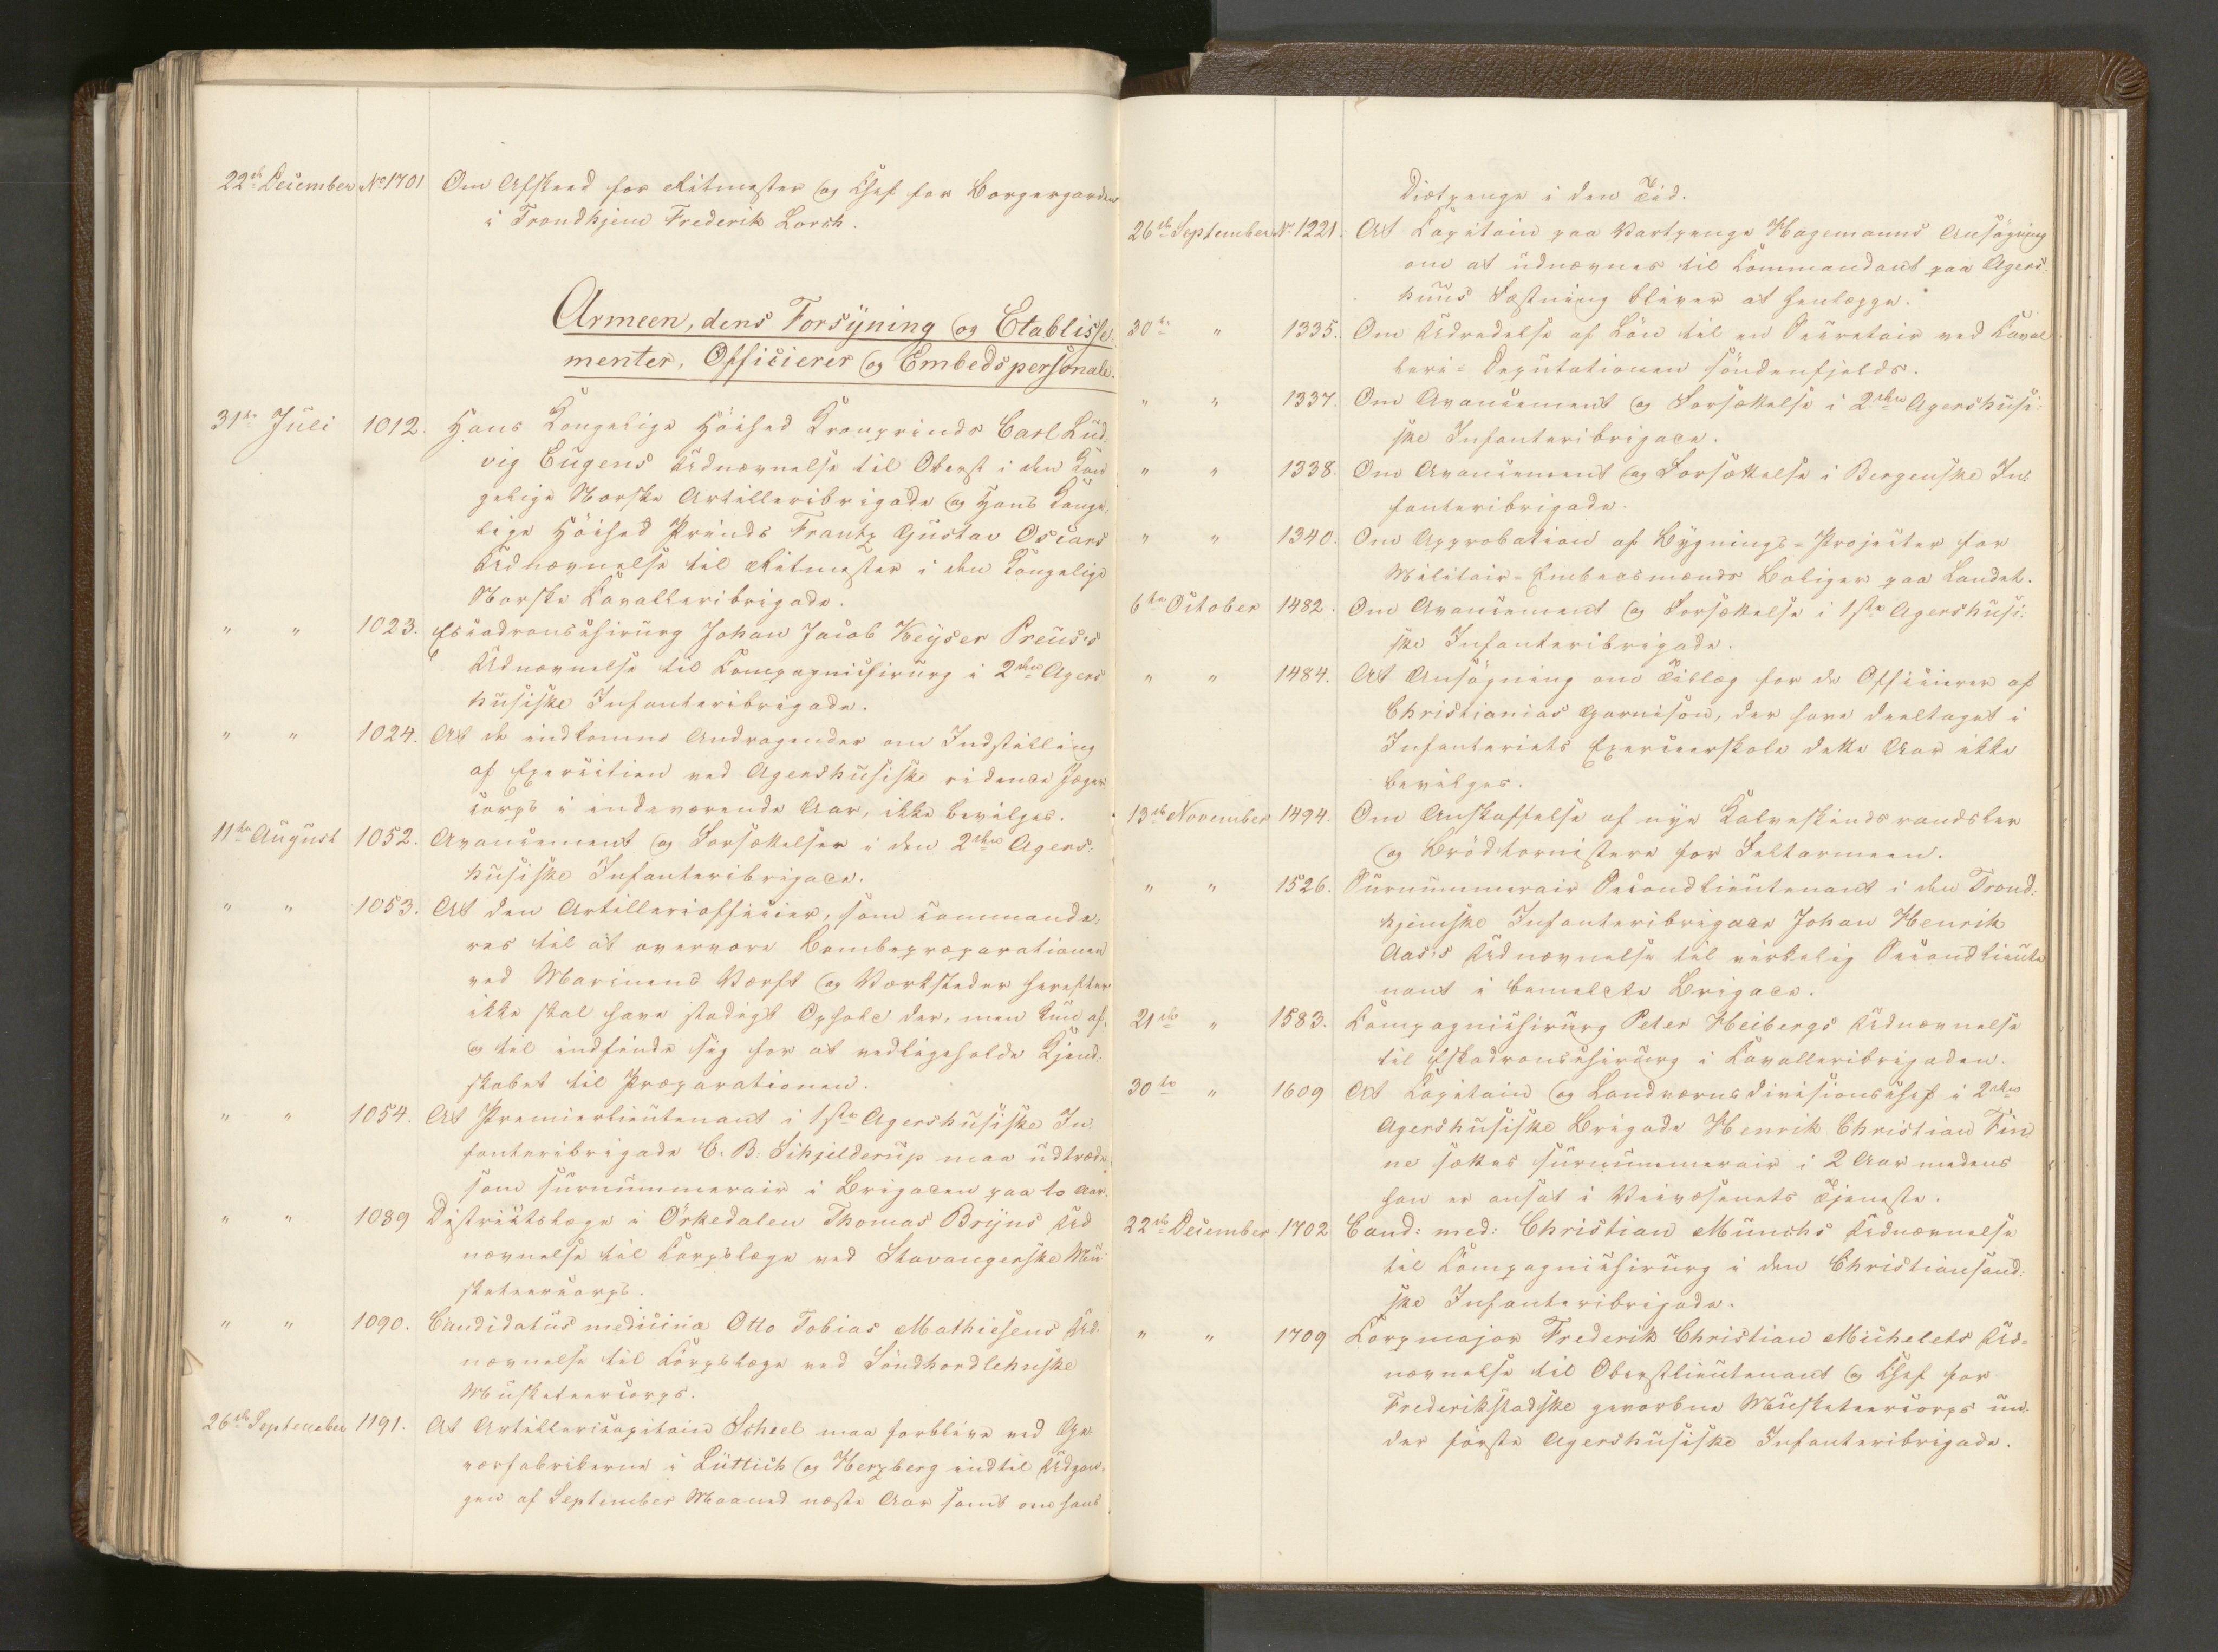 22de December No 1701 Om Afskeed for Ritmester og Chef for Borgergarden
i Trondhjem Frederik Lorch.
Armeen, dens Forsyning og Etablisse-
menter, Officierer og Embedspersonale.
31te Juli 1012. Hans Kongelige Höihed Kronprinds Carl Lud-
vig Eugens Udnævnelse til Oberst i den Kon-
gelige Norske Artilleribrigade og Hans Konge-
lige Höihed Prinds Frantz Gustav Oscars
Udnævnelse til Ritmester i den Kongelige
Norske Cavalleribrigade.
" " 1023. Escadronschirurg Johan Jacob Keyser Preus's
Udnævnelse til Compagnichirurg i 2den Agers-
husiske Infanteribrigade.
" " 1024. At de indkomne Andragender om Indstilling
af Exercitien ved Agershusiske ridende Jæger-
corps i indeværende Aar, ikke bevilges.
11te August 1052. Avancement og Forsættelser i den 2den Agers-
husiske Infanteribrigade.
" " 1053. At den Artilleriofficier, som commande-
res til at overvære Bombepræparationen
ved Marinens Værft og Værksteder herefter
ikke skal have stadigt Ophold der, men kun af-
og til indfinde sig for at vedligeholde Kjend-
skabet til Præparationen.
" " 1054. At Premierlieutenant i 1ste Agershusiske In-
fanteribrigade C. B. Schjelderup maa udtræde
som surnummerair i Brigaden paa to Aar.
" " 1089 Districtslæge i Örkedalen Thomas Bryns Ud-
nævnelse til Corpslæge ved Stavangerske Mu-
sketeercorps.
" " 1090. Candidatus medicinæ Otto Tobias Mathiesens Ud-
nævnelse til Corpslæge ved Söndhordlehnske
Musketeercorps.
26de September 1191. At Artillericapitain Scheel maa forblive ved Ge-
værfabrikerne i Lüttich og Herzberg indtil Udgan-
gen af September Maaned næste Aar samt om hans
Diætpenge i den Tid.
26de September No 1221. At Capitain paa Vartpenge Hagemanns Ansögning
om at udnævnes til Commandant paa Agers-
huus Fæstning bliver at henlægge.
30te " 1335. Om Udredelse af Lön til en Secretair ved Caval-
leri-Deputationen söndenfjelds.
" " 1337. Om Avancement og Forsættelse i 2den Agershusi-
ske Infanteribrigade.
" " 1338. Om Avancement og Forsættelse i Bergenske In-
fanteribrigade.
" " 1340. Om Approbation af Bygnings-Projecter for
Militair-Embedsmænds Boliger paa Landet.
6te October 1482. Om Avancement og Forsættelse i 1ste Agershusi-
ske Infanteribrigade.
" " 1484. At Ansögning om Tillæg for de Officierer af
Christianias Garnison, der have deeltaget i
Infanteriets Exerceerskole dette Aar ikke
bevilges.
13de November 1494. Om Anskaffelse af nye Kalveskinds randsler
og Brödtornistere for Feltarmeen.
" " 1526. Surnummerair Secondlieutenant i den Trond-
hjemske Infanteribrigade Johan Henrik
Aas's Udnævnelse til virkelig Secondlieute-
nant i bemeldte Brigade.
21de " 1583. Compagnichirurg Peter Heibergs Udnævnelse
til Eskadronschirurg i Cavalleribrigaden.
30te " 1609 At Capitain og Landværnsdivisionschef i 2den
Agershusiske Brigade Henrik Christian Fin-
ne sættes surnummerair i 2 Aar medens
han er ansat i Veivæsenets Tjeneste.
22de December 1702 Cand: med: Christian Munchs Udnævnelse
til Compagnichirurg i den Christiansand-
ske Infanteribrigade.
" " 1709 Corpsmajor Frederik Christian Michelets Ud-
nævnelse til Oberstlieutenant og Chef for
Frederikstadske gevorbne Musketeercorps un-
der förste Agershusiske Infanteribrigade.